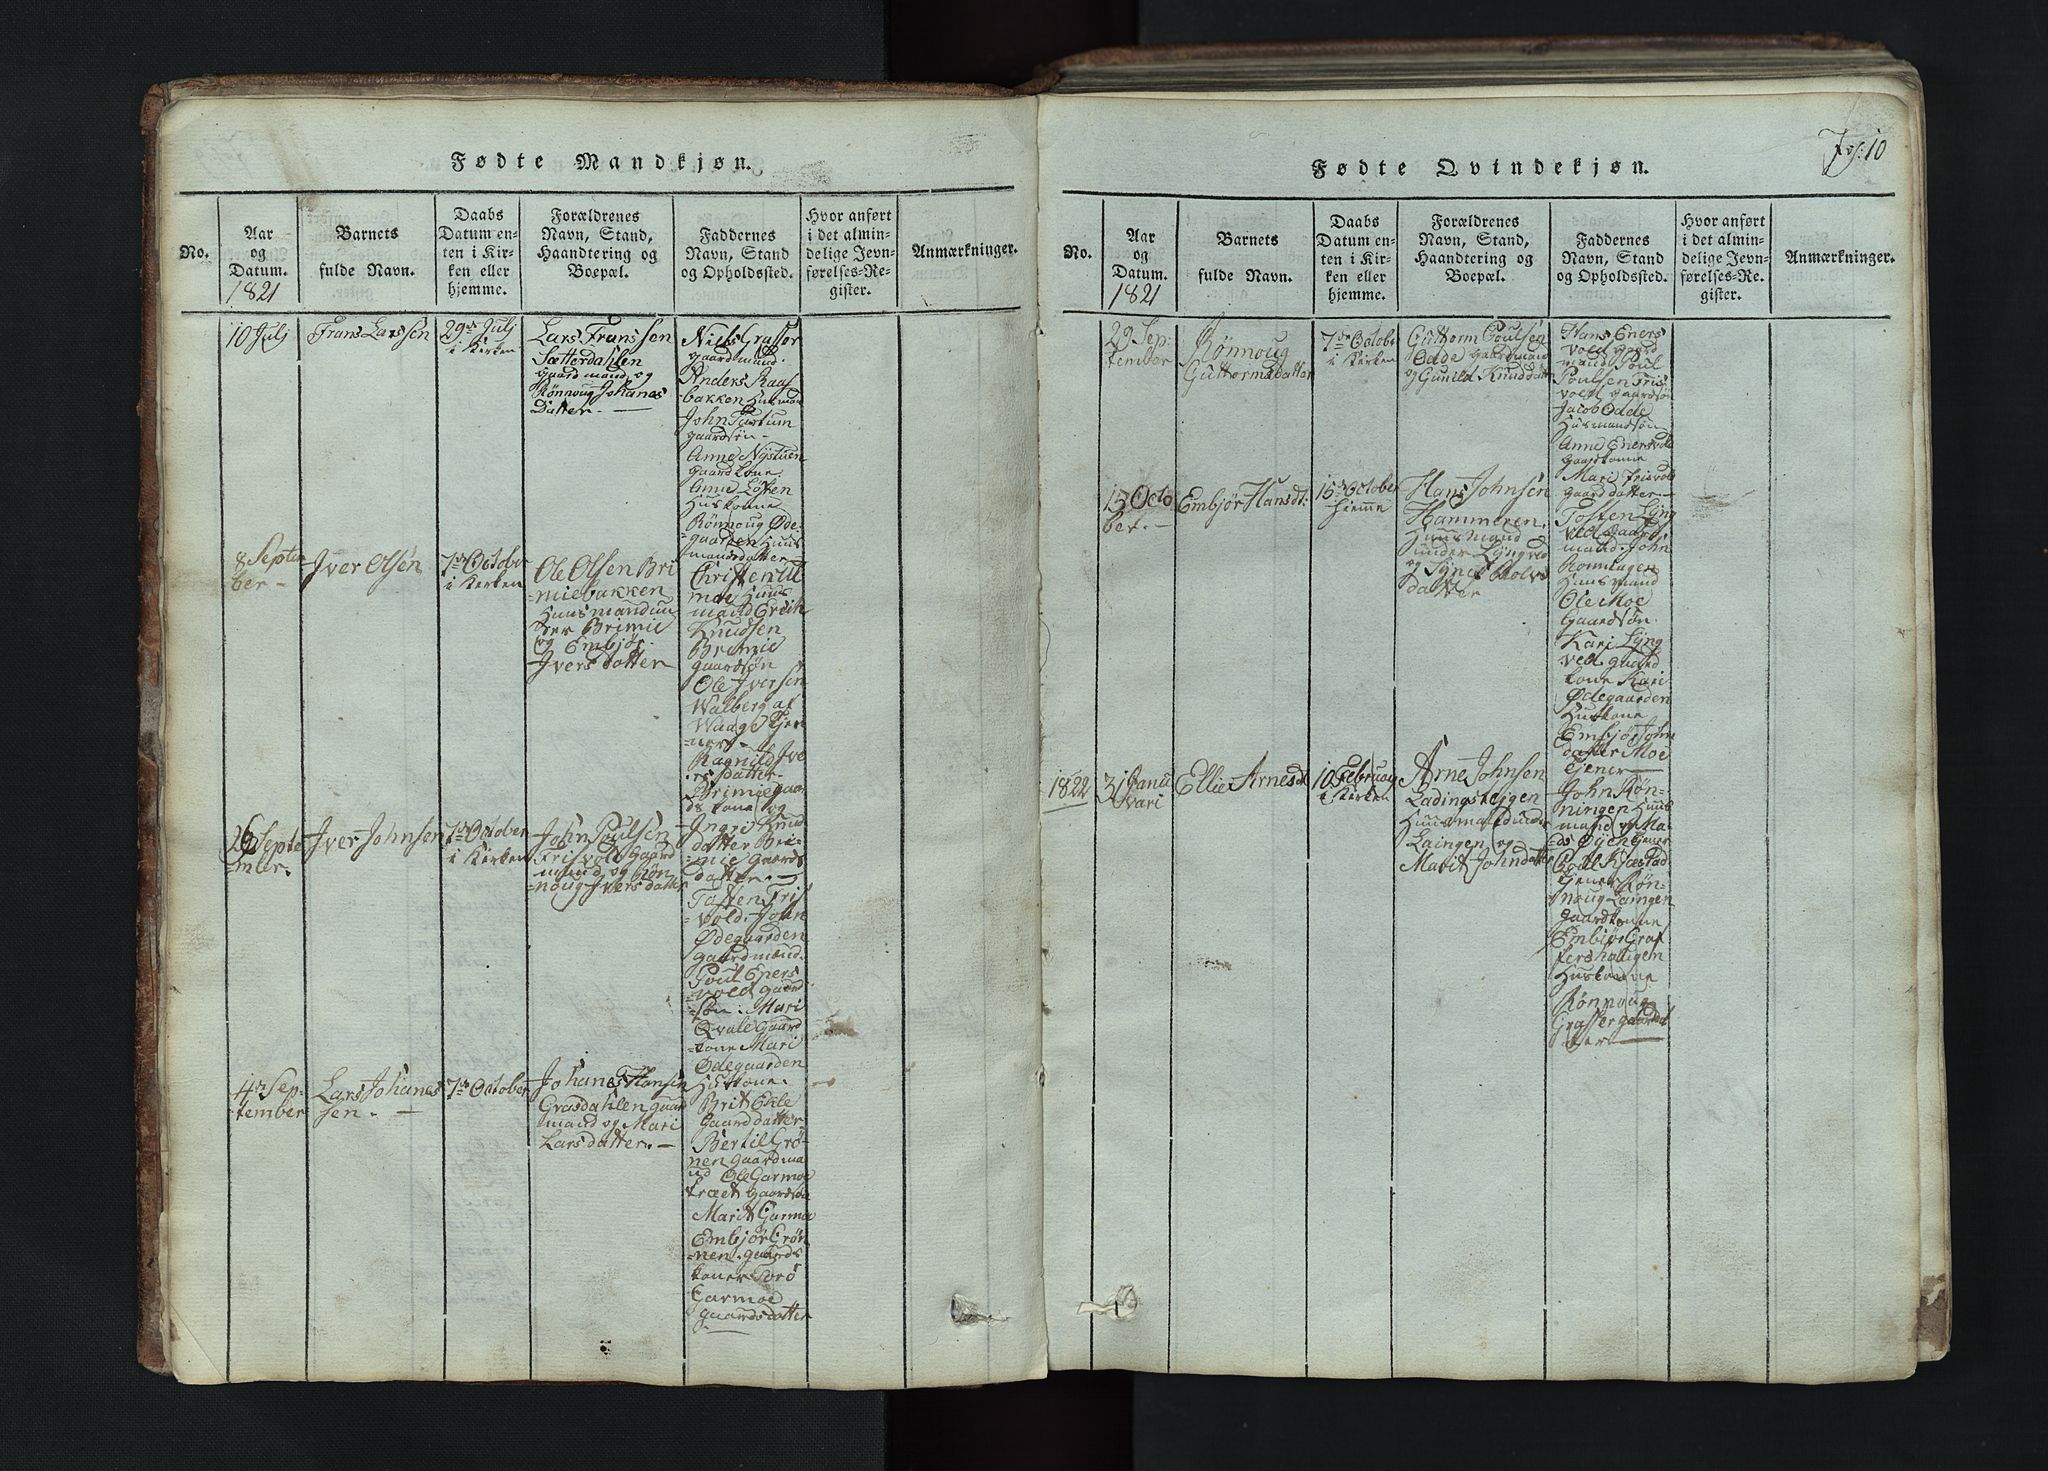 Fødte Mandkjøn.
No.
Aar
og
Datum.
1821
Barnets
fulde Navn.
Daabs
Datum en-
ten i Kir-
ken eller
hjemme.
Forældrenes
Navn, Stand,
Haandtering og
Boepæl.
Faddernes
Navn, Stand
og Opholdssted.
Hvor anført
i det almin-
delige Jevn-
førelses-Re-
gister.
Anmærkninger.
10 Julj
Frans Larssen
29de Julj
i Kirken
Lars Franssen
Sætterdahlen
Gaardmand og
Rønnoug Johanes
Datter. —
Niels Graffer
gaardmand.
Anders Raas
bakken Husman
John Tastum
gaardsøn —
Anne Nystuen
gaardkone
Anne Løften
Huskonne
Rønnoug Øde-
gaarden Huus
mandsdatter —
8 Septem
ber —
Iver Olsøn
7de October
i Kirken
Ole Olsen Bri
miebakken
Huusmand un
der Brimie
og Embjør
Iversdatter
Christen Ul
moe Huus
mand Erich
Knudsen
Brimie
gaardsøn
Ole Iversen
Walberg af
Waage Tjen
nere —
Ragnild Ive
rsdatter
Brimie gaar
ds kone og
Ingri Knud
datter Bri-
mie gaards
datter. —
26 Septe
mber.
Iver Johnsen
7de October
i Kirken
John Poulsen
Frisvold Gaard
mand og Røn
noug Iversdatter
Tosten Fris
vold. John
Ødegaarden
gaardmænd.
Poul Eners
vold gaard
søn. Mari
Qvale Gaard
kone Mari
Ødegaarden
Huskone.
Brit Ekle
Gaarddatter
4de Sep-
tember
Lars Johanes
sen. —
7de October
Johanes Hansen
Grasdahlen gaar
mand og Mari
Larsdatter. —
Bertil Grø-
nen gaardma
nd Ole Garmoe
træet gaardsøn
Marit Garmoe
Embjør Grøn
nen. gaards
koner Torø
Garmoe
gaardsdatter
Fødte Qvindekjøn.
10
No.
Aar
og
Datum.
1821
Barnets
fulde Navn.
Daabs
Datum en-
ten i Kir-
ken eller
hjemme.
Forældrenes
Navn, Stand,
Haandtering og
Boepæl.
Faddernes
Navn, Stand
og Opholdssted.
Hvor anført
i det almin-
delige Jevn-
førelses-Re-
gister.
Anmærkninger.
29 Sep-
tember
Rønnoug
Guttormsdatter
7de Octobr
i Kirken
Guttorm Poulsen
Odde gaardmand
og Gunild Knuddatter
Hans Eners
vold gaard
mand Poul
Poulsen Fris
vold gaardsøn
Jacob Odde
Husmandsøn
Anne Enersvold
gaardkonne
Mari Frisvold
Gaarddatter —
15 Octo
ber. —
Embjør Hansdt.
15de October
hiemme
Hans Johnsen
Hammeren.
Huusmand
under Lyngved
og Synev Rolvs
datter
Tosten Lyng
ved Gaard
mand. John
Ronningen
Huusmand
Ole Moe
Gaardsøn.
Kari Lyng
ved gaard
kone Kari
Ødegaarden
Huskone
Embjør John
datter Moe
tjener —
1822
31 Janu
vari
Ellie Arnesdt
10 Februay
i Kirken
Arne Johnsen
Ladingsteigen
Huusmand under
Laingen og
Marit Johndatter
John Røn-
ningen Huus
mand og Ma-
ds Øyen tjener
Poul Kjæstad
tjener Røn-
noug Laingen
Gaardkonne
Embjør Graf
fershaugen
Huskonne
Rønnoug
Graffer gaardsdat
ter